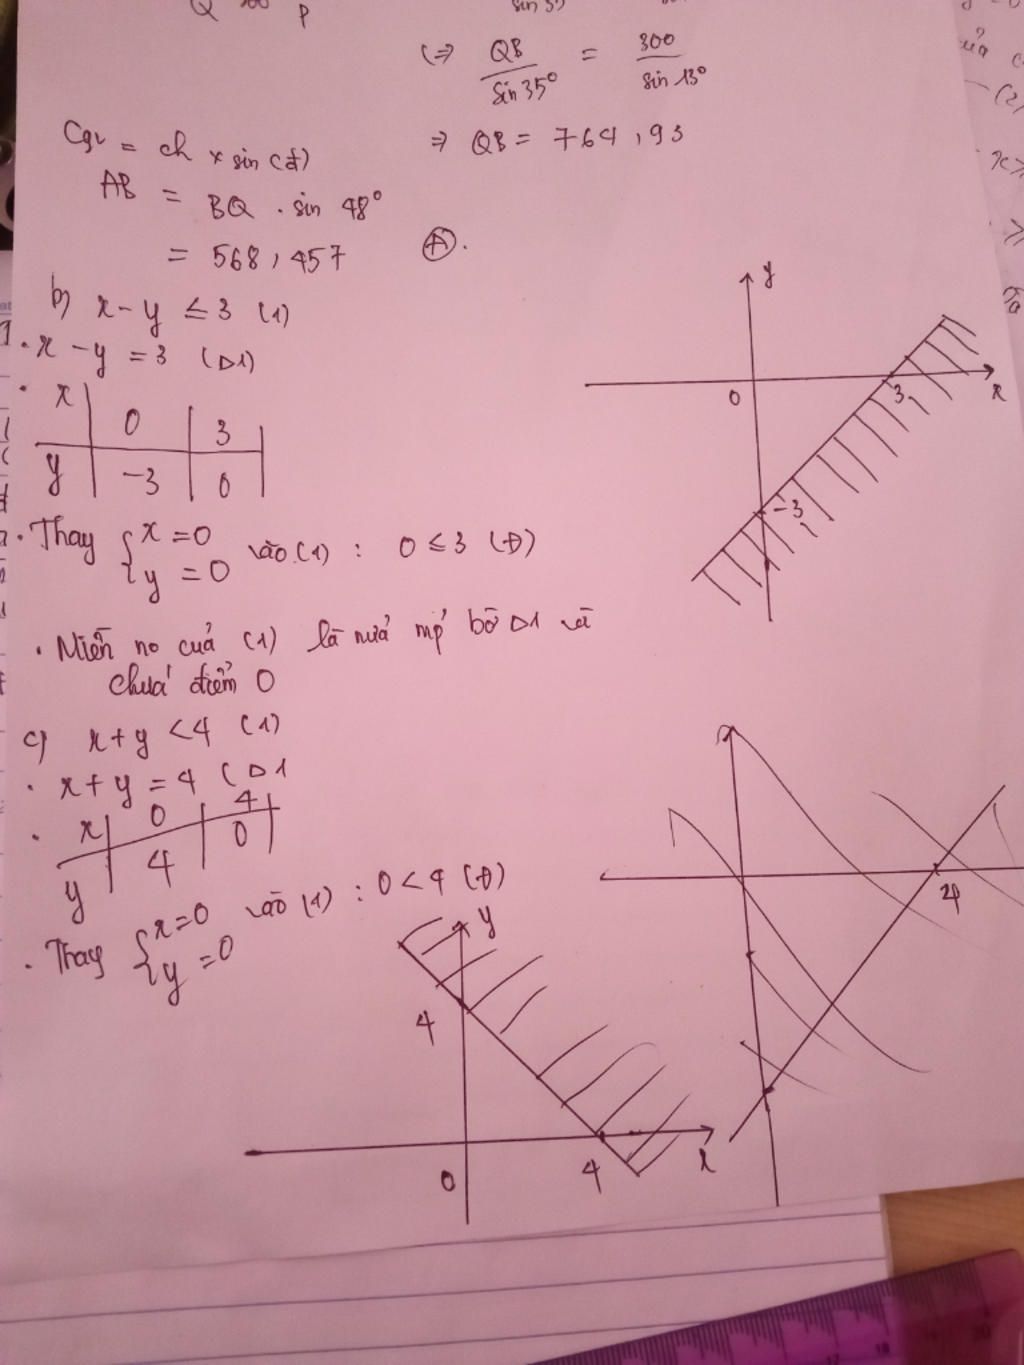 Q P
sin 35
(⇒ QB/Sin 35° = 300/sin 13°
Cgv = ch x sin (đ)
⇒ QB = 764,93
AB = BQ . sin 48°
= 568,457 (A).
b) x - y ≤ 3 (1)
• x - y = 3 (Δ1)
• x | 0 | 3
y | -3 | 0
• Thay { x = 0
{ y = 0 vào (1) : 0 ≤ 3 (Đ)
• Miền no của (1) là nửa mp bờ Δ1 và
chứa điểm 0
c) x + y < 4 (1)
• x + y = 4 (Δ1
• x | 0 | 4
y | 4 | 0
• Thay { x = 0
{ y = 0 vào (1) : 0 < 4 (Đ)
y
0 3 x
-3
4
y
4
0 4 x
(2)
x ≥